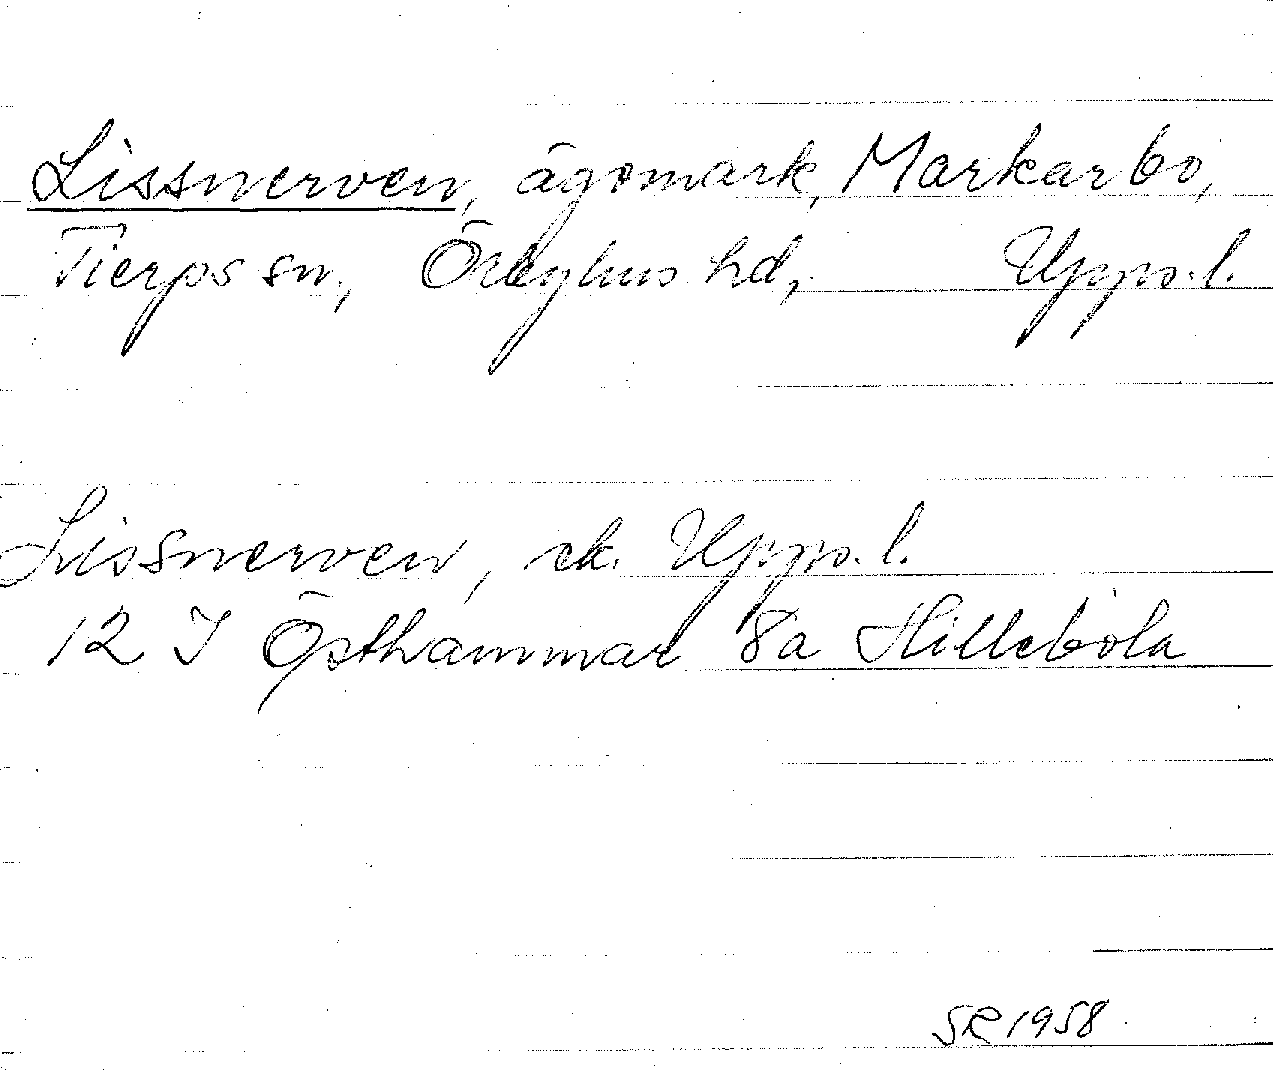 Lissnerven, ägomark, Markarbo,
Tierps sn, Örbyhus hd, Upps. l.
Lissnerven, ek. Upps. l.
12 I Östhammar 8a Hillebola
SR 1958